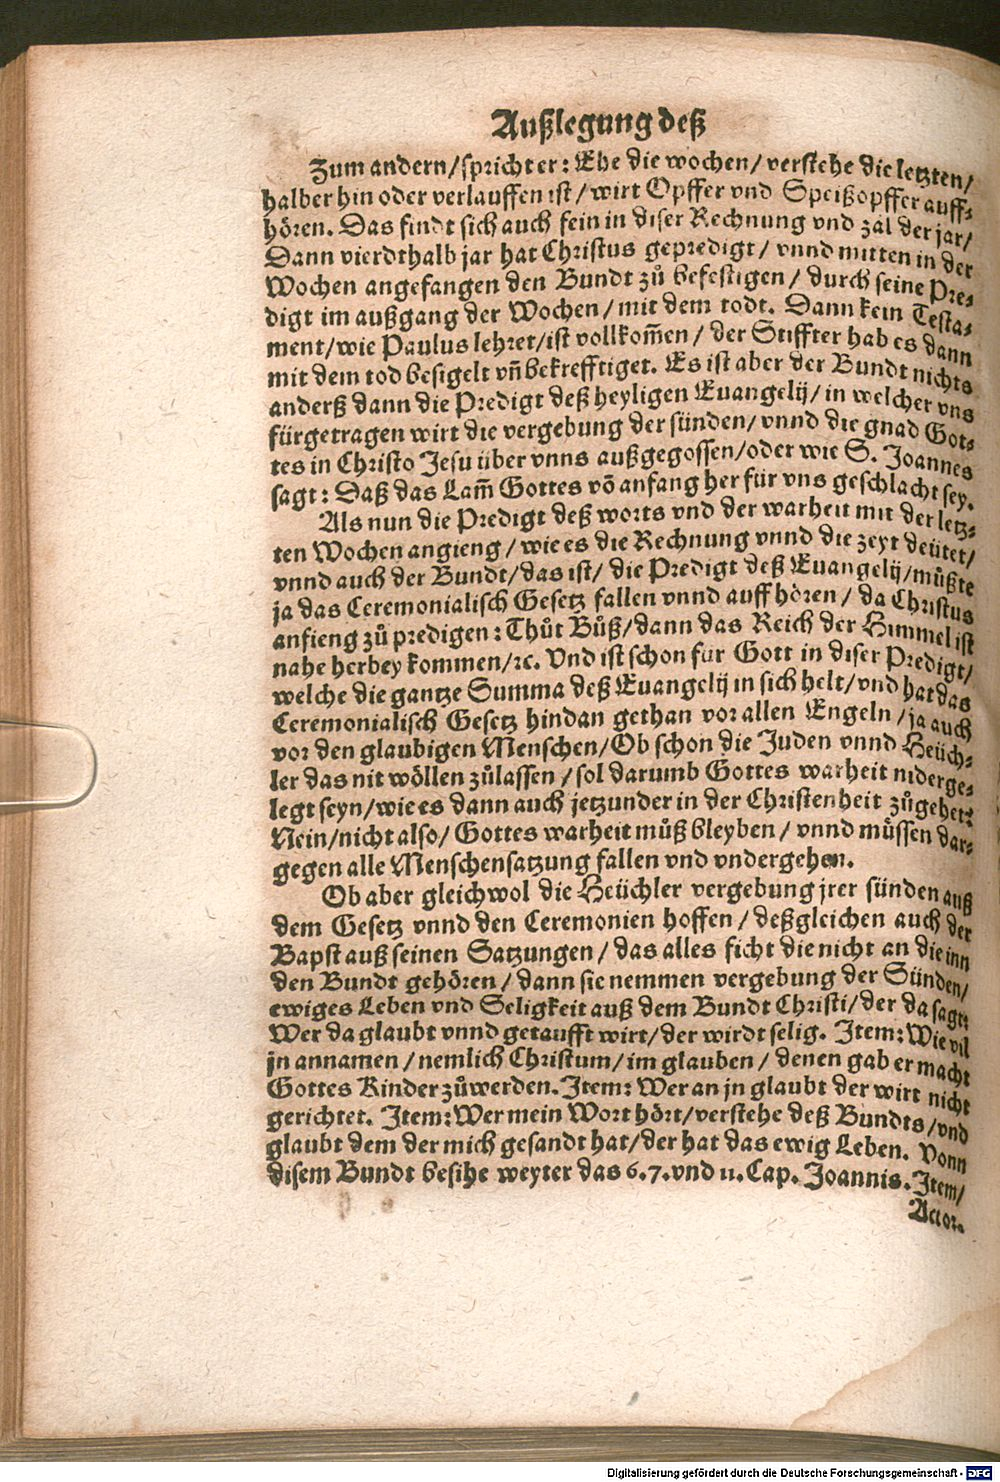 Außlegung deß
Zum andern/ spricht er: Ehe die wochen/ verstehe die letzten/
halber hin oder verlauffen ist/ wirt Opffer vnd Speißopffer auff⸗
hören. Das findt sich auch fein in diser Rechnung vnd zal der jar/
Dann vierdthalb jar hat Christus gepredigt/ vnnd mitten in der
Wochen angefangen den Bundt zů befestigen/ durch seine Pre⸗
digt im außgang der Wochen/ mit dem todt. Dann kein Testa⸗
ment/ wie Paulus lehret/ ist vollkom̃en/ der Stiffter hab es dann
mit dem tod besigelt vñ bekrefftiget. Es ist aber der Bundt nichts
anderß dann die Predigt deß heyligen Euangelij/ in welcher vns
fürgetragen wirt die vergebung der sünden/ vnnd die gnad Got⸗
tes in Christo Jesu über vnns außgegossen/ oder wie S. Joannes
sagt: Daß das Lam̃ Gottes võ anfang her für vns geschlacht sey.
Als nun die Predigt deß worts vnd der warheit mit der letz⸗
ten Wochen angieng/ wie es die Rechnung vnnd die zeyt deütet/
vnnd auch der Bundt/ das ist/ die Predigt deß Euangelij/ můßte
ja das Ceremonialisch Gesetz fallen vnnd auff hören/ da Christus
anfieng zů predigen: Thůt Bůß/ dann das Reich der Himmel ist
nahe herbey kommen/ ꝛc. Vnd ist schon für Gott in diser Predigt/
welche die gantze Summa deß Euangelij in sich helt/ vnd hat das
Ceremonialisch Gesetz hindan gethan vor allen Engeln/ ja auch
vor den glaubigen Menschen/ Ob schon die Juden vnnd Heüch⸗
ler das nit wöllen zůlassen/ sol darumb Gottes warheit niderge⸗
legt seyn/ wie es dann auch jetzunder in der Christenheit zůgehet?
Nein/ nicht also/ Gottes warheit můß bleyben/ vnnd müssen dar⸗
gegen alle Menschensatzung fallen vnd vndergehen.
Ob aber gleichwol die Heüchler vergebung jrer sünden auß
dem Gesetz vnnd den Ceremonien hoffen/ deßgleichen auch der
Bapst auß seinen Satzungen/ das alles ficht die nicht an die inn
den Bundt gehören/ dann sie nemmen vergebung der Sünden/
ewiges Leben vnd Seligkeit auß dem Bundt Christi/ der da sagt:
Wer da glaubt vnnd getaufft wirt/ der wirdt selig. Item: Wie vil
jn annamen/ nemlich Christum/ im glauben/ denen gab er macht
Gottes Kinder zůwerden. Item: Wer an jn glaubt der wirt nicht
gerichtet. Item: Wer mein Wort hört/ verstehe deß Bundts/ vnd
glaubt dem der mich gesandt hat/ der hat das ewig Leben. Vonn
disem Bundt besihe weyter das 6. 7. vnd 11. Cap. Joannis. Item/
Actor.
Digitalisierung gefördert durch die Deutsche Forschungsgemeinschaft - DFG